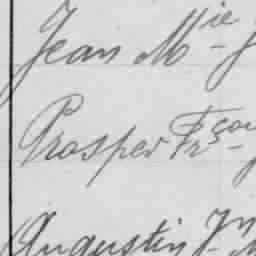 Jean Mie-
Prosper Frçois-
Augustin Jn-